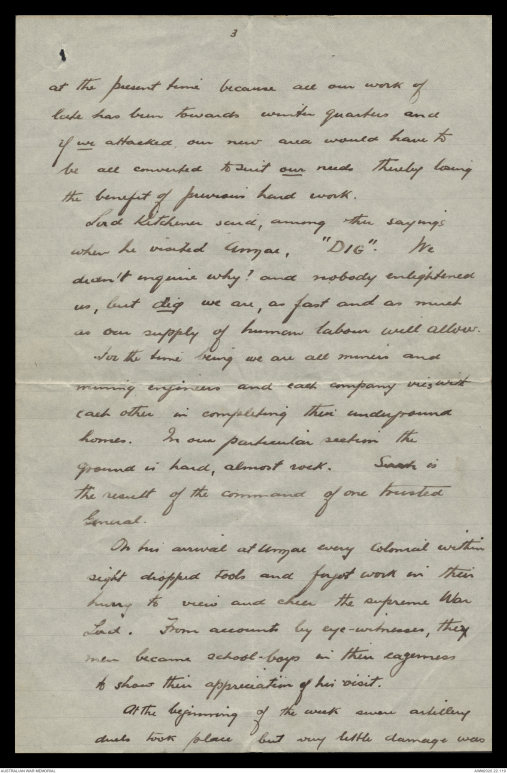 3
at the present time because all our work of
late has been towards winter quarters and
if we attacked our new area would have to
be all converted to suit our needs thereby losing
the benefit of previous hard work.
Lord Kitchener said, among other sayings
when he visited Anzac, "DIG". We
didn't inquire why? and nobody enlightened
us, but dig we are, as fast and as much
as our supply of human labour will allow.
For the time being we are all miners and
mining engineers and each company vies with
each other in completing their underground
homes. In our particular section the
ground is hard, almost rock. Such is
the result of the command of one trusted
General.
On his arrival at Anzac every Colonial within
sight dropped tools and forgot work in their
hurry to view and cheer the supreme War
Lord. From accounts by eye-witnesses, the
men became school-boys in their eagerness
to show their appreciation of his visit.
At the beginning of the week severe artillery
duels took place but very little damage was
AUSTRALIAN WAR MEMORIAL